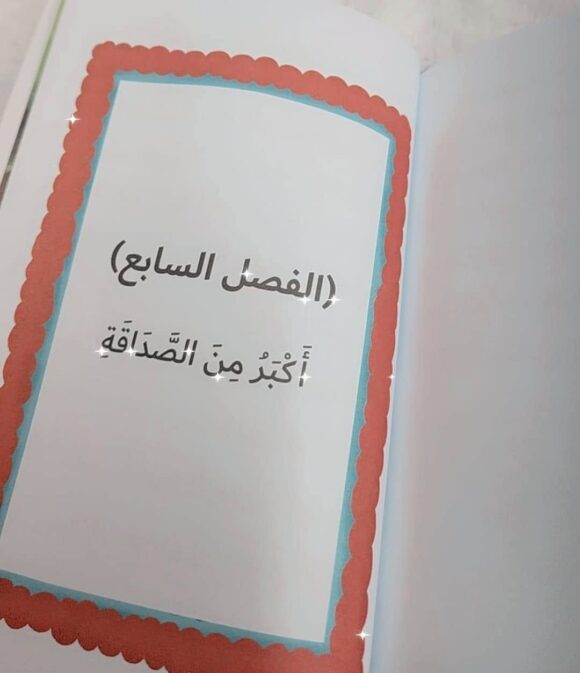 (الفصل السابع)
أَكْبَرُ مِنَ الصَّدَاقَةِ